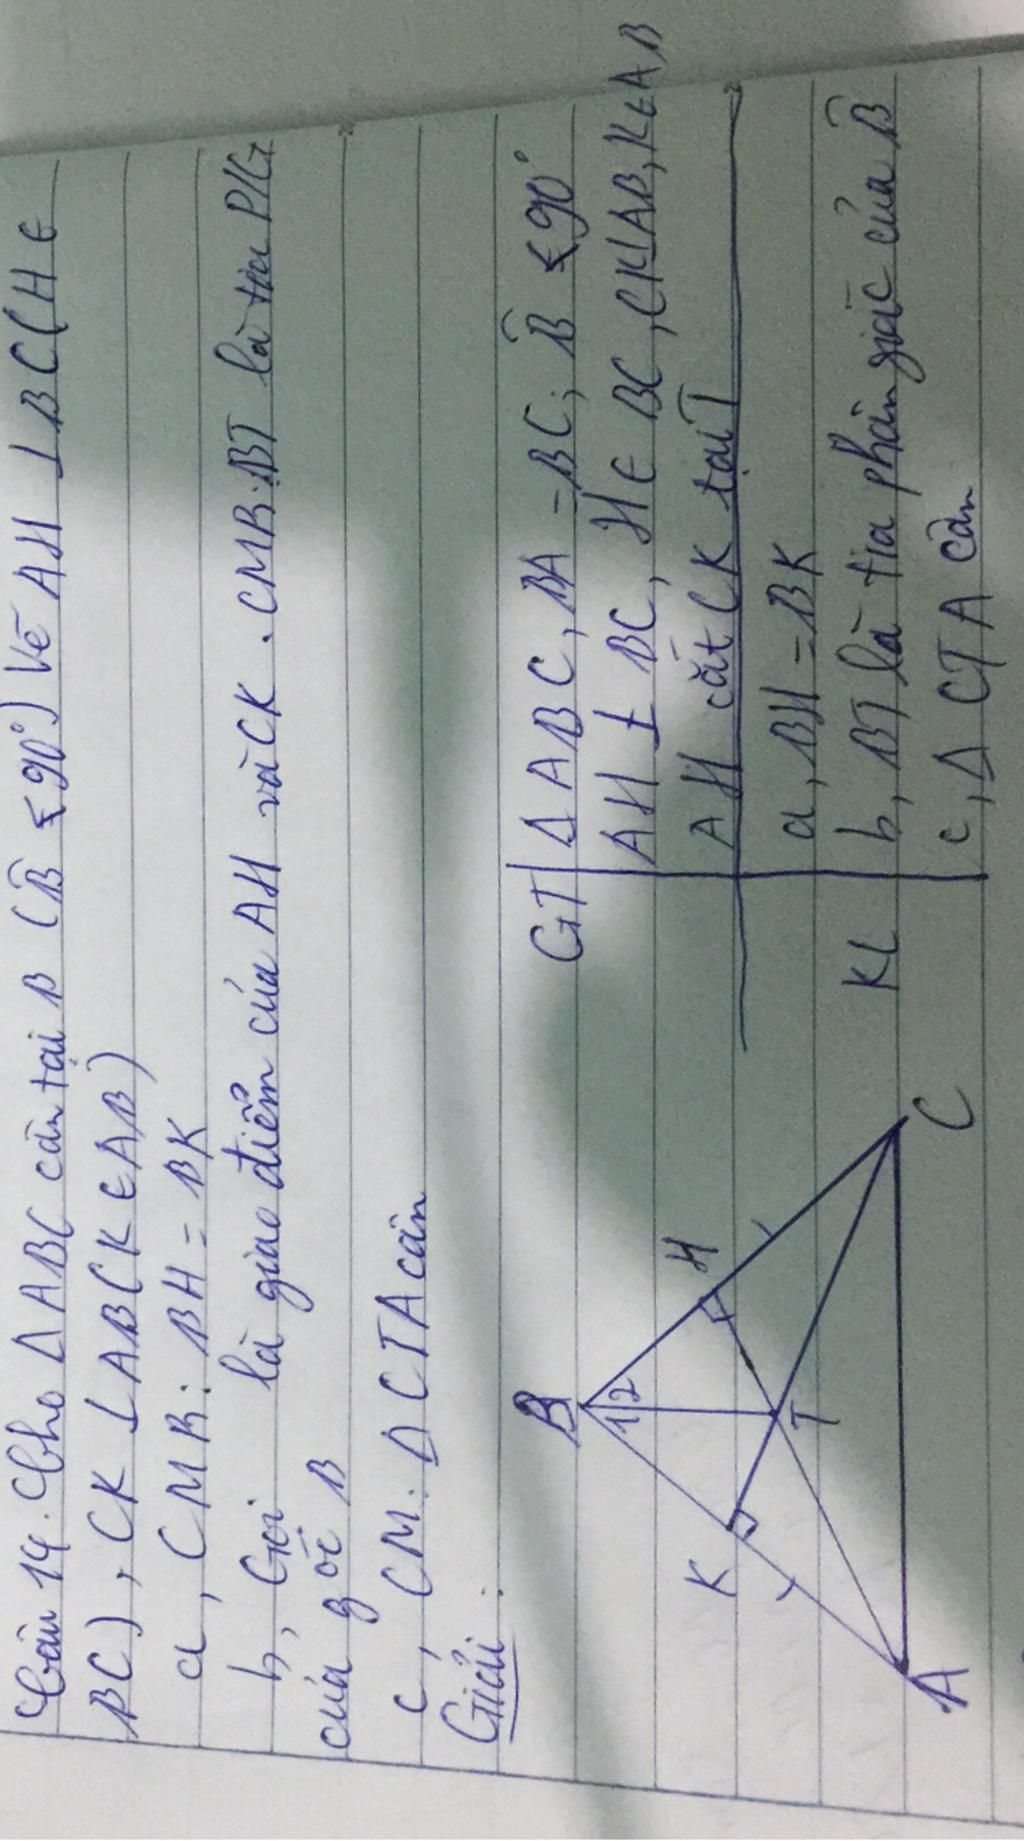 Câu 14. Cho Δ ABC cân tại B (B̂ < 90°) Vẽ AH ⊥ BC (H ∈
BC), CK ⊥ AB (K ∈ AB)
a, CMR: BH = BK
b, Gọi là giao điểm của AH và CK. CMR: BT là tia P/G
của góc B
c, CM: Δ CTA cân
Giải:
GT Δ ABC, BA = BC; B̂ < 90°
AH ⊥ BC, H ∈ BC, CK⊥AB, K∈AB
AH cắt CK tại T
KL a, BH = BK
b, BT là tia phân giác của B̂
c, Δ CTA cân
B
1 2
K H
T
A C